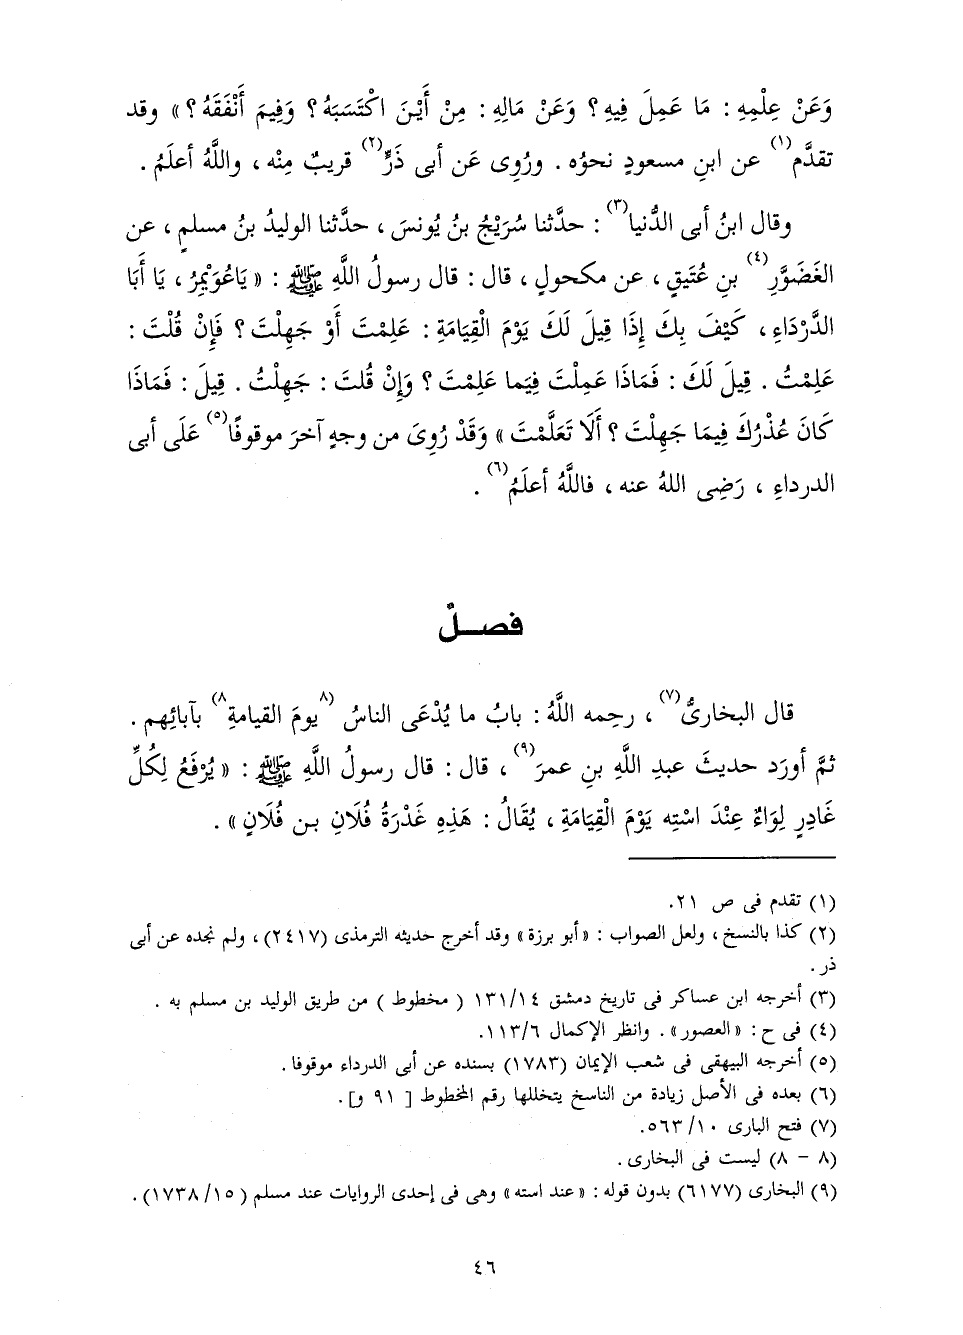 وَعَنْ عِلْمِهِ : مَا عَمِلَ فِيهِ ؟ وَعَنْ مَالِهِ : مِنْ أَيْنَ اكْتَسَبَهُ ؟ وَفِيمَ أَنْفَقَهُ ؟ » وقد
تقدَّم(١) عن ابنِ مسعودٍ نحوُه . ورُوِى عَن أبى ذَرٍّ(٢) قريبٌ مِنْه ، واللَّهُ أعلَمُ .
وقال ابنُ أبى الدُّنيا(٣) : حدَّثنا سُرَيْجُ بنُ يُونسَ ، حدَّثنا الوليدُ بنُ مسلمٍ ، عن
الغَضَوَّرِ(٤) بنِ عُتَيقٍ ، عن مكحولٍ ، قال : قال رسولُ اللَّهِ ﷺ : « يَاعُوَيْمِرُ ، يَا أَبَا
الدَّرْدَاءِ ، كَيْفَ بِكَ إِذَا قِيلَ لَكَ يَوْمَ الْقِيَامَةِ : عَلِمْتَ أَوْ جَهِلْتَ ؟ فَإِنْ قُلْتَ :
عَلِمْتُ . قِيلَ لَكَ : فَمَاذَا عَمِلْتَ فِيَما عَلِمْتَ ؟ وَإِنْ قُلتَ : جَهِلْتُ . قِيلَ : فَمَاذَا
كَانَ عُذْرُكَ فِيمَا جَهِلْتَ ؟ أَلَا تَعَلَّمْتَ » وَقَدْ رُوِىَ من وجهٍ آخرَ موقوفًا(٥) عَلَى أبى
الدرداءِ ، رَضِى اللهُ عنه ، فاللَّهُ أعلَمُ(٦) .
فصلٌ
قال البخارىُّ(٧) ، رحِمه اللَّهُ : بابُ ما يُدْعَى الناسُ (٨يومَ القيامةِ٨) بآبائِهم .
ثمَّ أورَد حديثَ عبدِ اللَّهِ بنِ عمرَ(٩) ، قال : قال رسولُ اللَّهِ ﷺ : « يُرْفَعُ لِكُلِّ
غَادِرٍ لِوَاءٌ عِنْدَ اسْتِه يَوْمَ الْقِيَامَةِ ، يُقَالُ : هَذِهِ غَدْرَةُ فُلَانِ بـن فُلَانٍ » .
(١) تقدم فى ص ٢١.
(٢) كذا بالنسخ ، ولعل الصواب : « أبو برزة » وقد أخرج حديثه الترمذى (٢٤١٧) ، ولم نجده عن أبى
ذر .
(٣) أخرجه ابن عساكر فى تاريخ دمشق ١٣١/١٤ ( مخطوط ) من طريق الوليد بن مسلم به .
(٤) فى ح : « العصور » . وانظر الإكمال ١١٣/٦.
(٥) أخرجه البيهقى فى شعب الإيمان (١٧٨٣) بسنده عن أبى الدرداء موقوفا .
(٦) بعده فى الأصل زيادة من الناسخ يتخللها رقم المخطوط [ ٩١ و] .
(٧) فتح البارى ٥٦٣/١٠.
(٨ - ٨) ليست فى البخارى .
(٩) البخارى (٦١٧٧) بدون قوله : « عند استه » وهى فى إحدى الروايات عند مسلم (١٧٣٨/١٥) .
٤٦